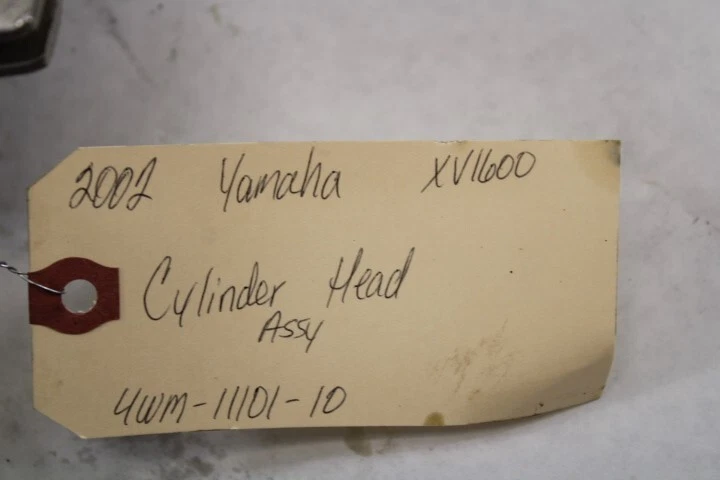 2002 Yamaha XV1600
Cylinder Head
Assy
4WM-11101-10